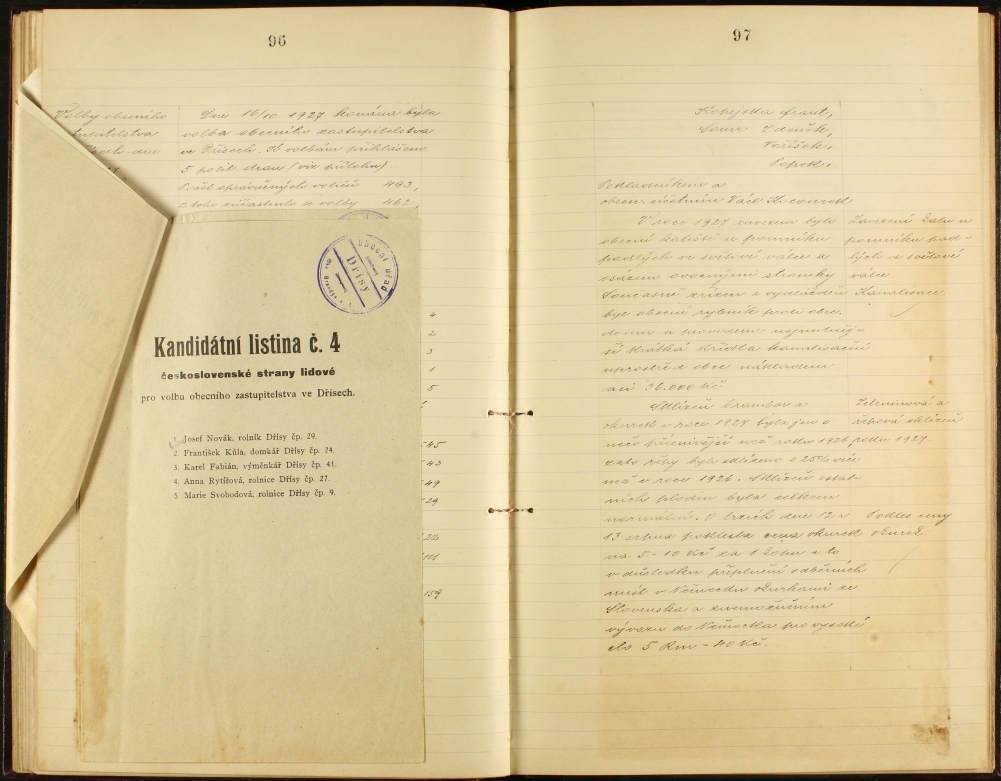 96
Volby obecního
Dne 16/10 1927 konána byla
volba obecního zastupitelstva
ve Dřísech. K volbám přihlášeno
5 polit stran (viz přílohu)
Počet oprávněných voličů 493,
z toho zúčastnilo se volby 462
Obecní úřad
Dřísy
Kandidátní listina č. 4
československé strany lidové
pro volbu obecního zastupitelstva ve Dřísech.
1. Josef Novák, rolník Dřísy čp. 29.
2. František Kůla, domkář Dřísy čp. 24.
3. Karel Fabián, výměnkář Dřísy čp. 41.
4. Anna Rytířová, rolnice Dřísy čp. 27.
5. Marie Svobodová, rolnice Dřísy čp. 9.
4
2
3
1
5
45
43
49
29
22
111
159
97
Kobejska Frant,
Zdeněk,
Voříšek,
Pokladníkem a
obecn. účetním Václ. Kocourek.
V roce 1927 zavezeno bylo
obecní kaliště u pomníku
padlých ve světové válce a
osázeno ovocnými stromky
Současně zřízen a vydlážděn
byl obecní rybník proti obec.
domu a provedena nejnutněj-
ší krátká křídla kanalisační
uprostřed obce nákladem
asi 36.000 Kč
Zavezení kalu u
pomníku pad-
lých ve světové
válce
Kanalisace
Sklizeň brambor a
okurek v roce 1927 byla jen o
něco příznivější než roku 1926,
zato řípy bylo sklizeno o 25% více
než v roce 1926. Sklizeň ostat-
ních plodin byla celkem
normální. O trzích dne 12 a
13 srpna poklesla cena okurek
na 5-10 Kč za 1 kopu a to
v důsledku přeplnění odběrních
míst v Německu okurkami ze
Slovenska a znemožněním
vývozu do Německa pro vysoké
clo 5 Rm - 40 Kč.
Zeleninová a
řepová sklizeň
roku 1927.
Pokles ceny
okurek